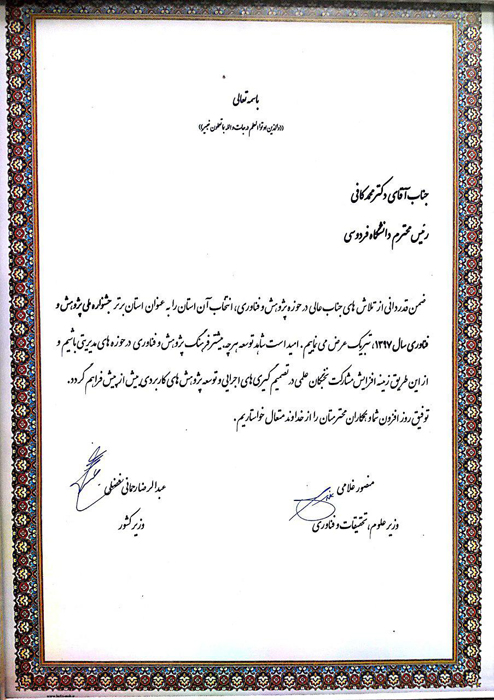 باسمه تعالی
«والذین اوتوا العلم درجات والله بما تعملون خبیر»
جناب آقای دکتر محمد کافی
رئیس محترم دانشگاه فردوسی
ضمن قدردانی از تلاش های جناب عالی در حوزه پژوهش و فناوری، انتخاب آن استان را به عنوان استان برتر جشنواره ملی پژوهش و
فناوری سال ۱۳۹۷، تبریک عرض می نماییم. امید است شاهد توسعه هر چه بیشتر فرهنگ پژوهش و فناوری در حوزه های مدیریتی باشیم و
از این طریق زمینه افزایش مشارکت نخبگان علمی در تصمیم گیری های اجرایی و توسعه پژوهش های کاربردی بیش از پیش فراهم گردد.
توفیق روز افزون شما و همکاران محترمتان را از خداوند متعال خواستاریم.
منصور غلامی
وزیر علوم، تحقیقات و فناوری
عبدالرضا رحمانی فضلی
وزیر کشور